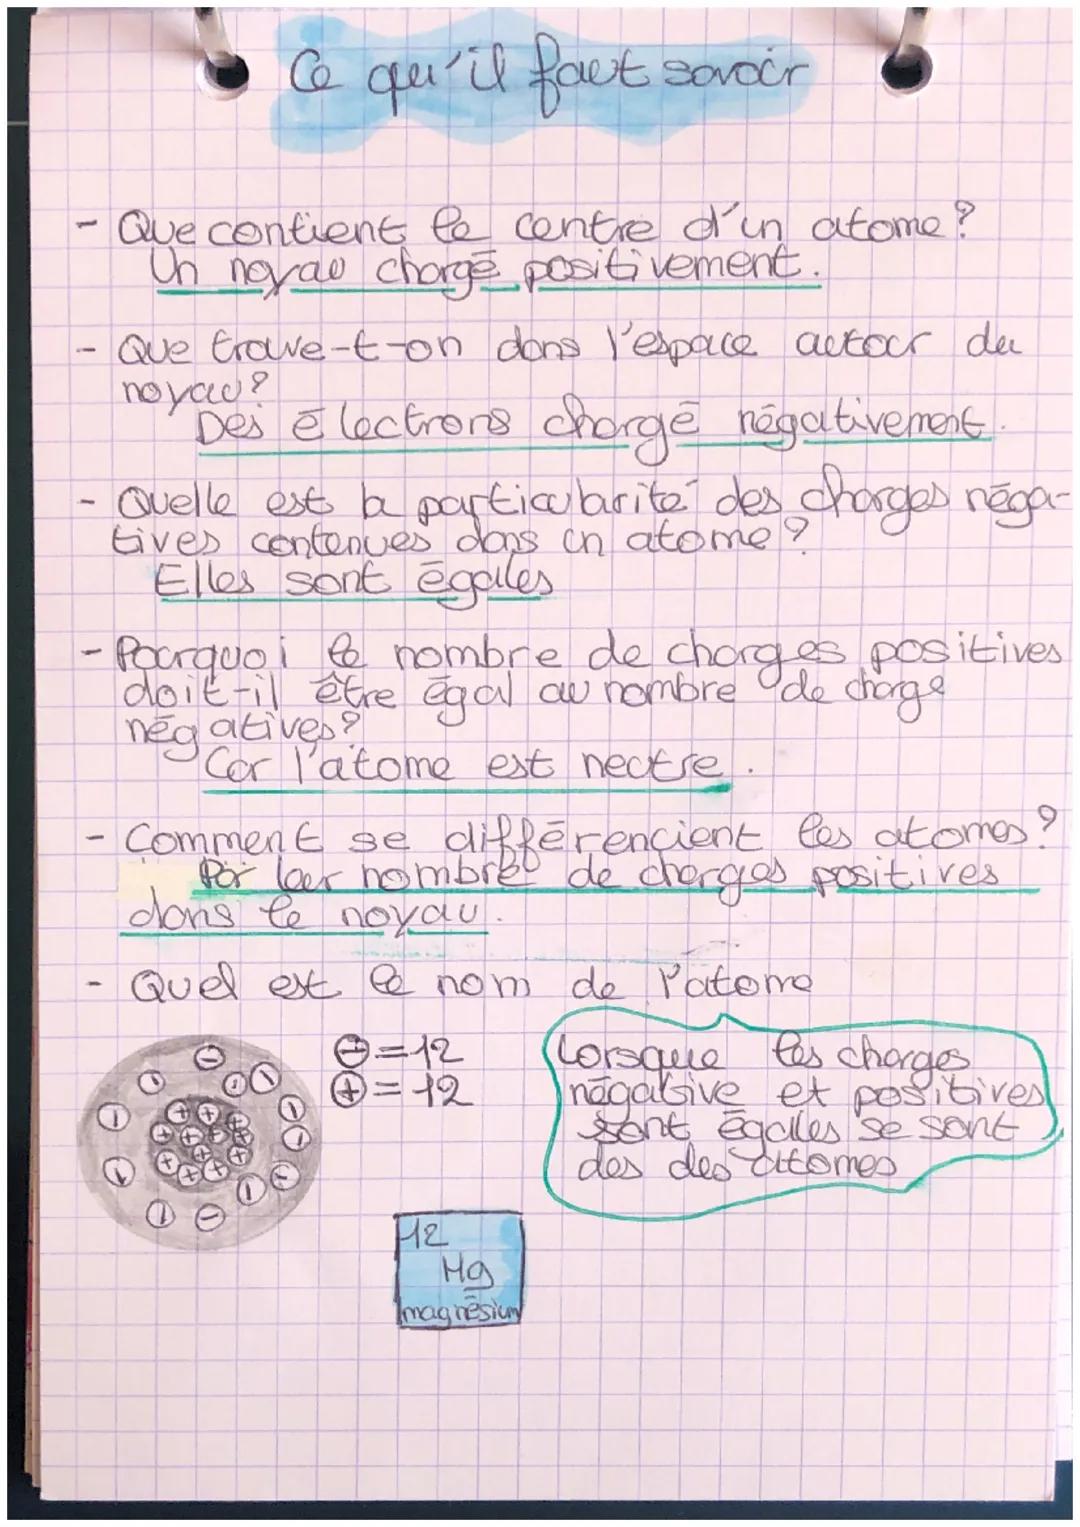 Ce qu'il faut savoir
- Que contient le centre d'un atome?
Un noyau chargé positivement.
- Que trouve-t-on dans l'espace autour du
noyau?
Des électrons chargé négativement.
- Quelle est la particularité des charges néga-
tives contenues dans un atome?
Elles sont égales
- Pourquoi le nombre de charges positives
doit-il être égal au nombre de charge
négatives?
Car l'atome est neutre.
- Comment se différencient les atomes?
Par leur nombre de charges positives
dans le noyau.
- Quel est le nom de l'atome
⊖=12
⊕=12
Lorsque les charges
négative et positives
sont égales se sont
des des atomes
12
Mg
magnésium